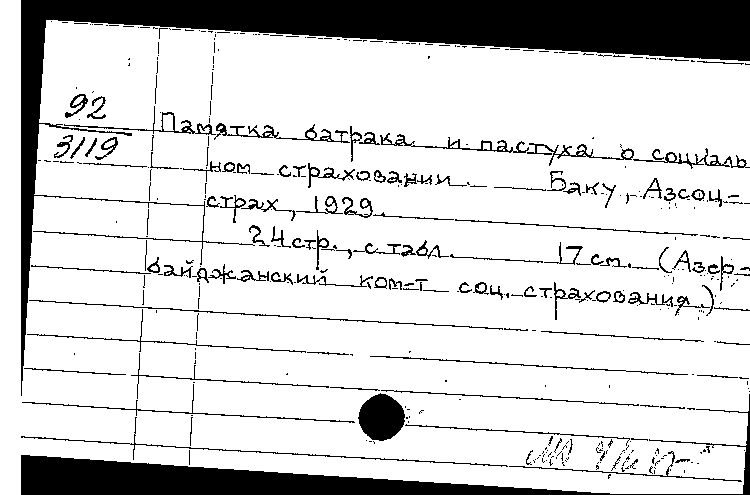 92
3119
Памятка батрака и пастуха о социаль
ном страховании. Баку, Азсоц-
страх, 1929.
24 стр., с табл. 17 см. (Азер-
байджанский ком-т соц. страхования.)